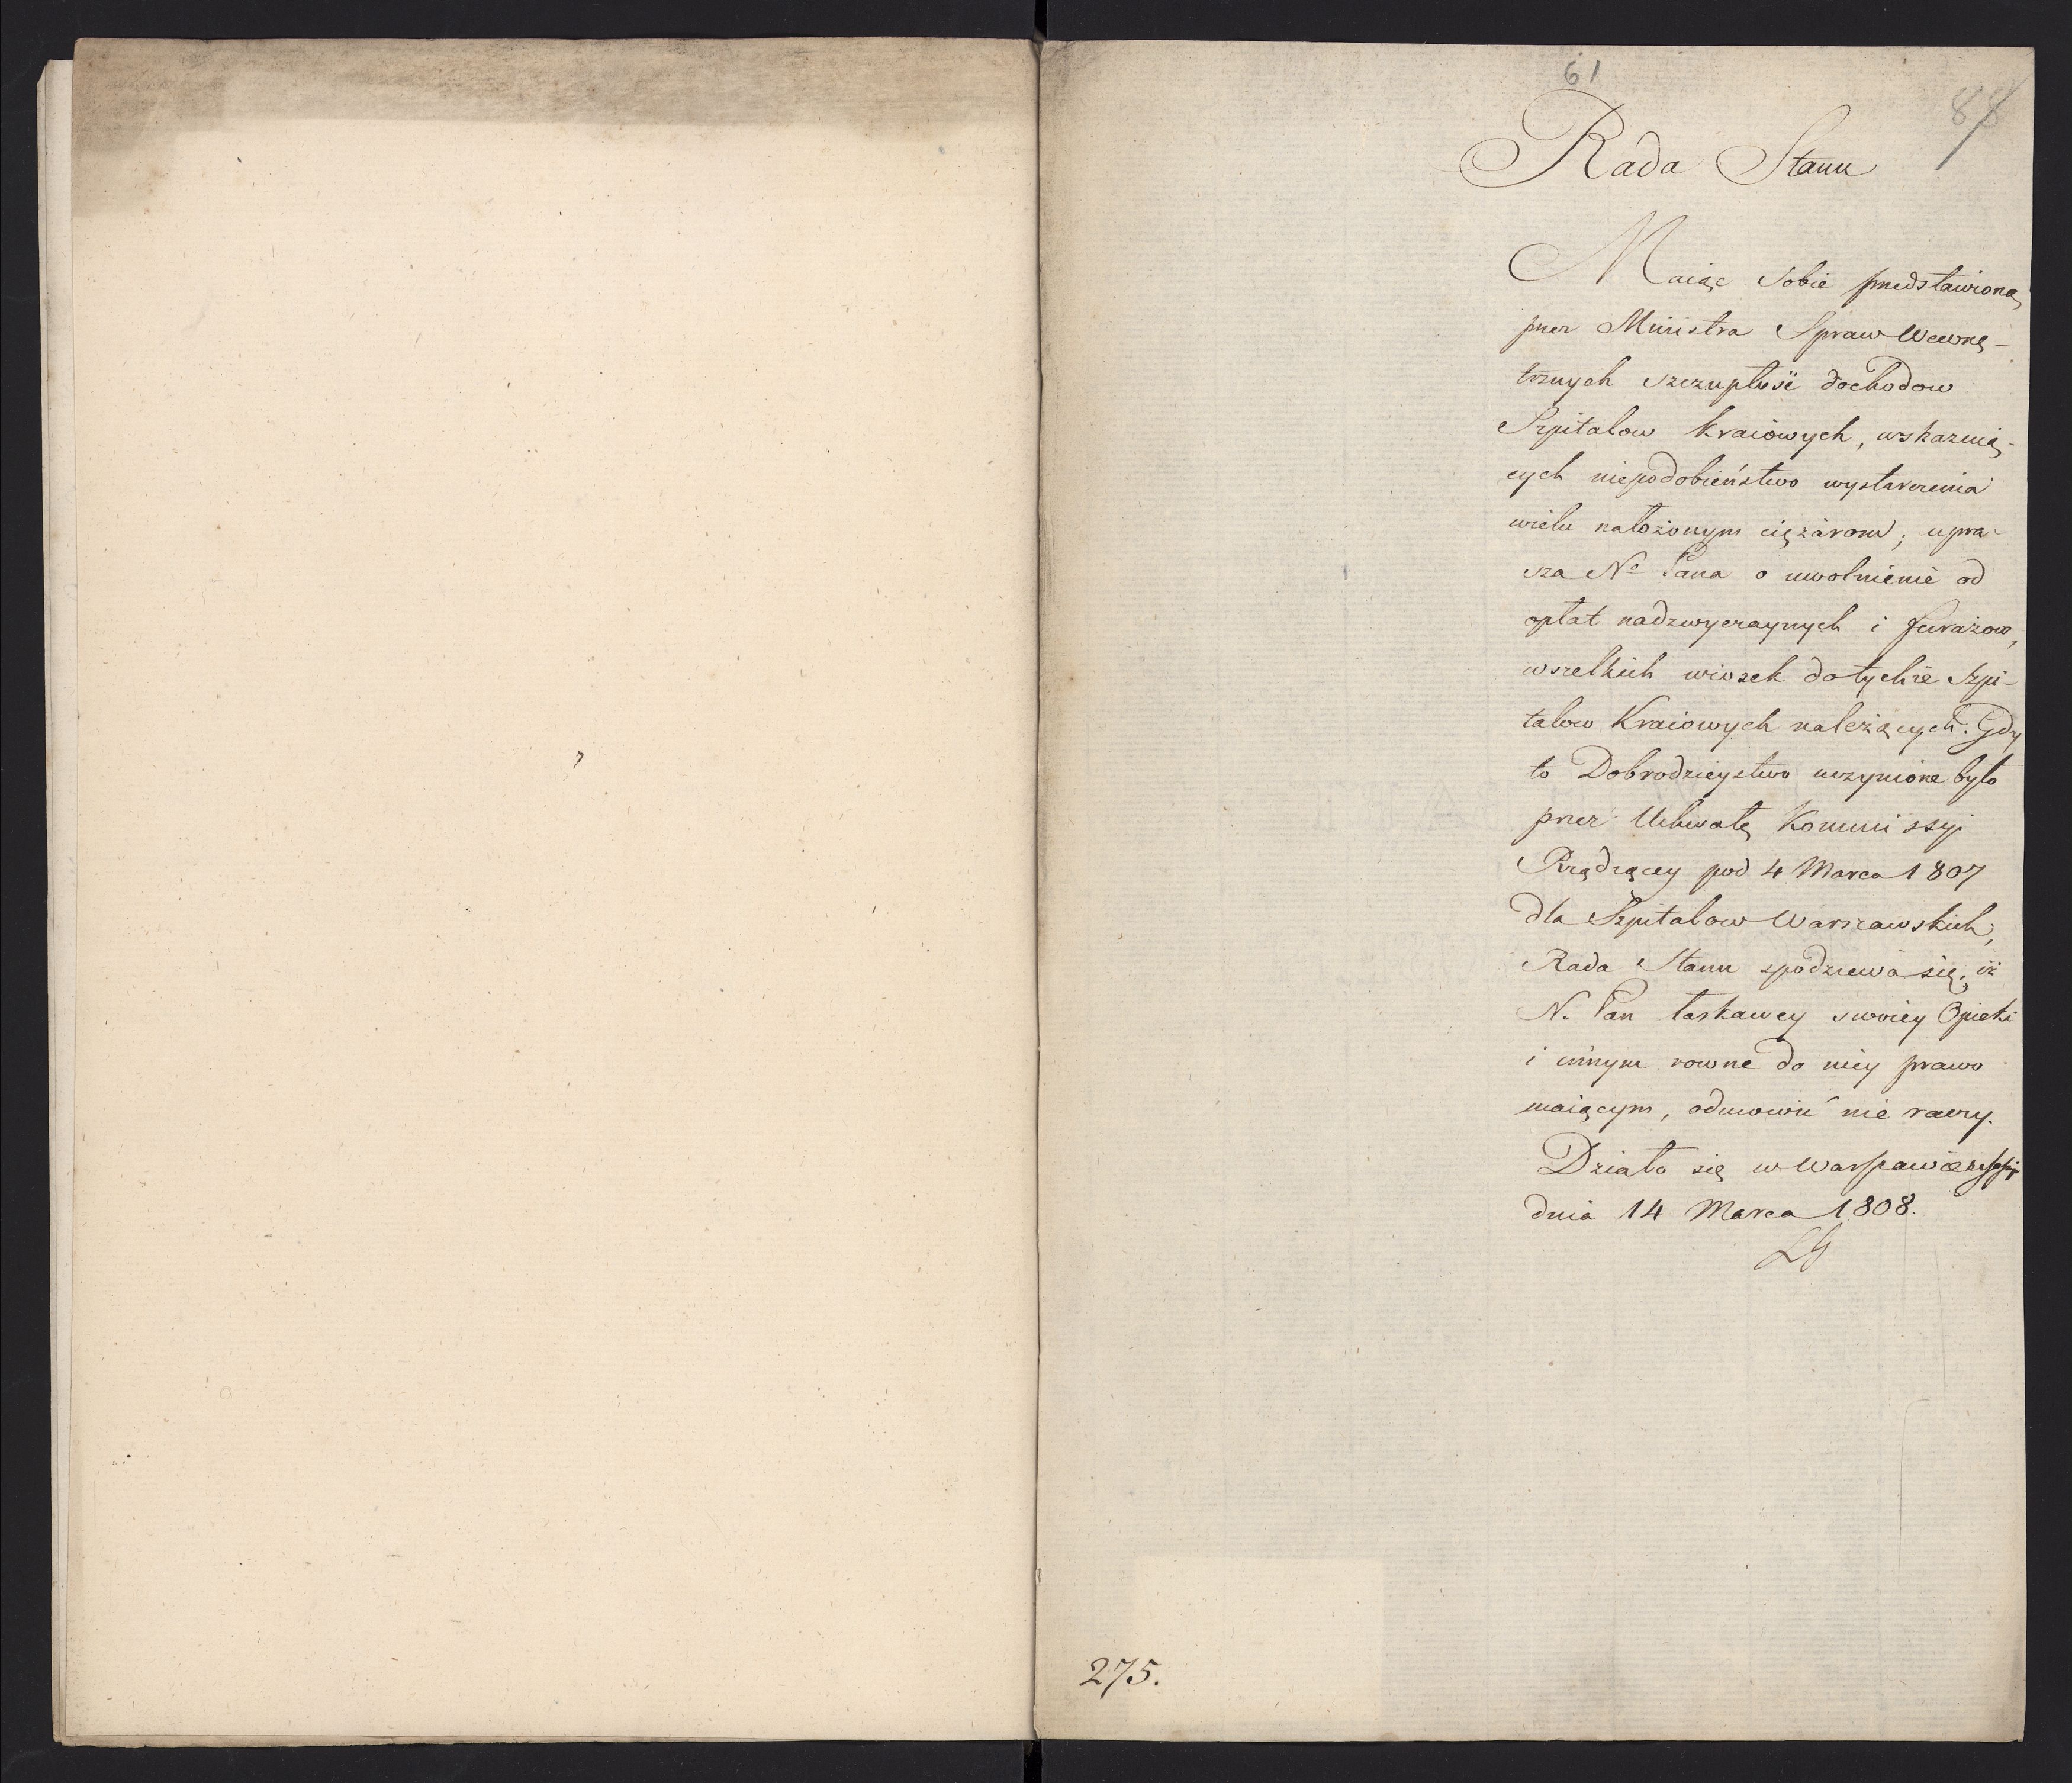 61
88
Rada Stanu
Maiąc sobie przedstawioną
przez Ministra Spraw Wewnę-
trznych szczupłość dochodow
Szpitalow kraiowych, wskazuią-
cych niepodobieństwo wystarczenia
wielu nałożonym ciężarom; upra-
sza Nº Pana o uwolnienie od
opłat nadzwyczaynych i furażow,
wszelkich wiosek do tychże Szpi-
talow Kraiowych należących. Gdy
to Dobrodzieystwo uczynione było
przez Uchwałę Kommissyi
Rządzącey pod 4 Marca 1807
dla Szpitalow Warszawskich,
Rada Stanu spodziewa się, iż
N. Pan łaskawey swoiey Opieki
i innym rowne do niey prawo
maiącym, odmowić nie raczy.
Działo się w Warszawie na sessyi
dnia 14 Marca 1808.
275.